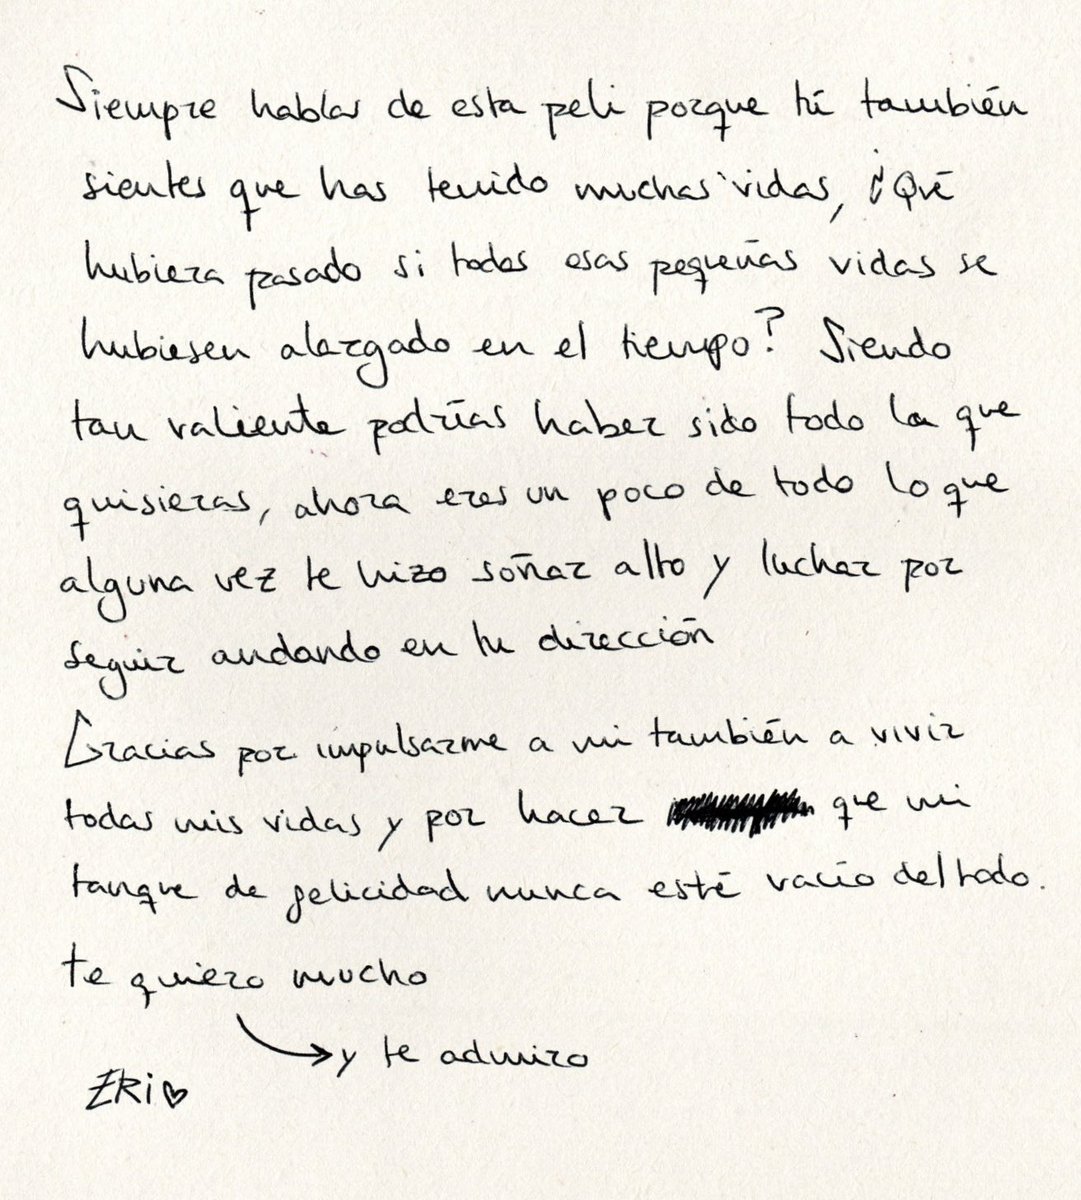 Siempre hablas de esta peli porque tú también
sientes que has tenido muchas vidas, ¿Qué
hubiera pasado si todas esas pequeñas vidas se
hubiesen alargado en el tiempo? Siendo
tan valiente podrías haber sido todo lo que
quisieras, ahora eres un poco de todo lo que
alguna vez te hizo soñar alto y luchar por
seguir andando en tu dirección
Gracias por impulsarme a mi también a vivir
todas mis vidas y por hacer que mi
tanque de felicidad nunca esté vacío del todo.
te quiero mucho
y te admiro
ERi